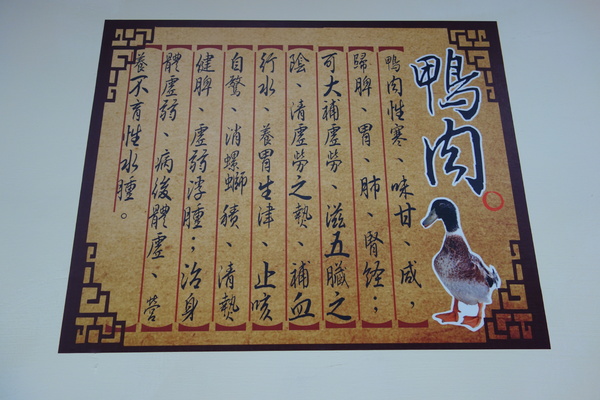 鴨肉
鴨肉性寒、味甘、咸，
歸脾、胃、肺、腎經；
可大補虛勞、滋五臟之
陰、清虛勞之熱、補血
行水、養胃生津、止咳
自驚、消螺螄積、清熱
健脾、虛弱浮腫；治身
體虛弱、病後體虛、營
養不育性水腫。